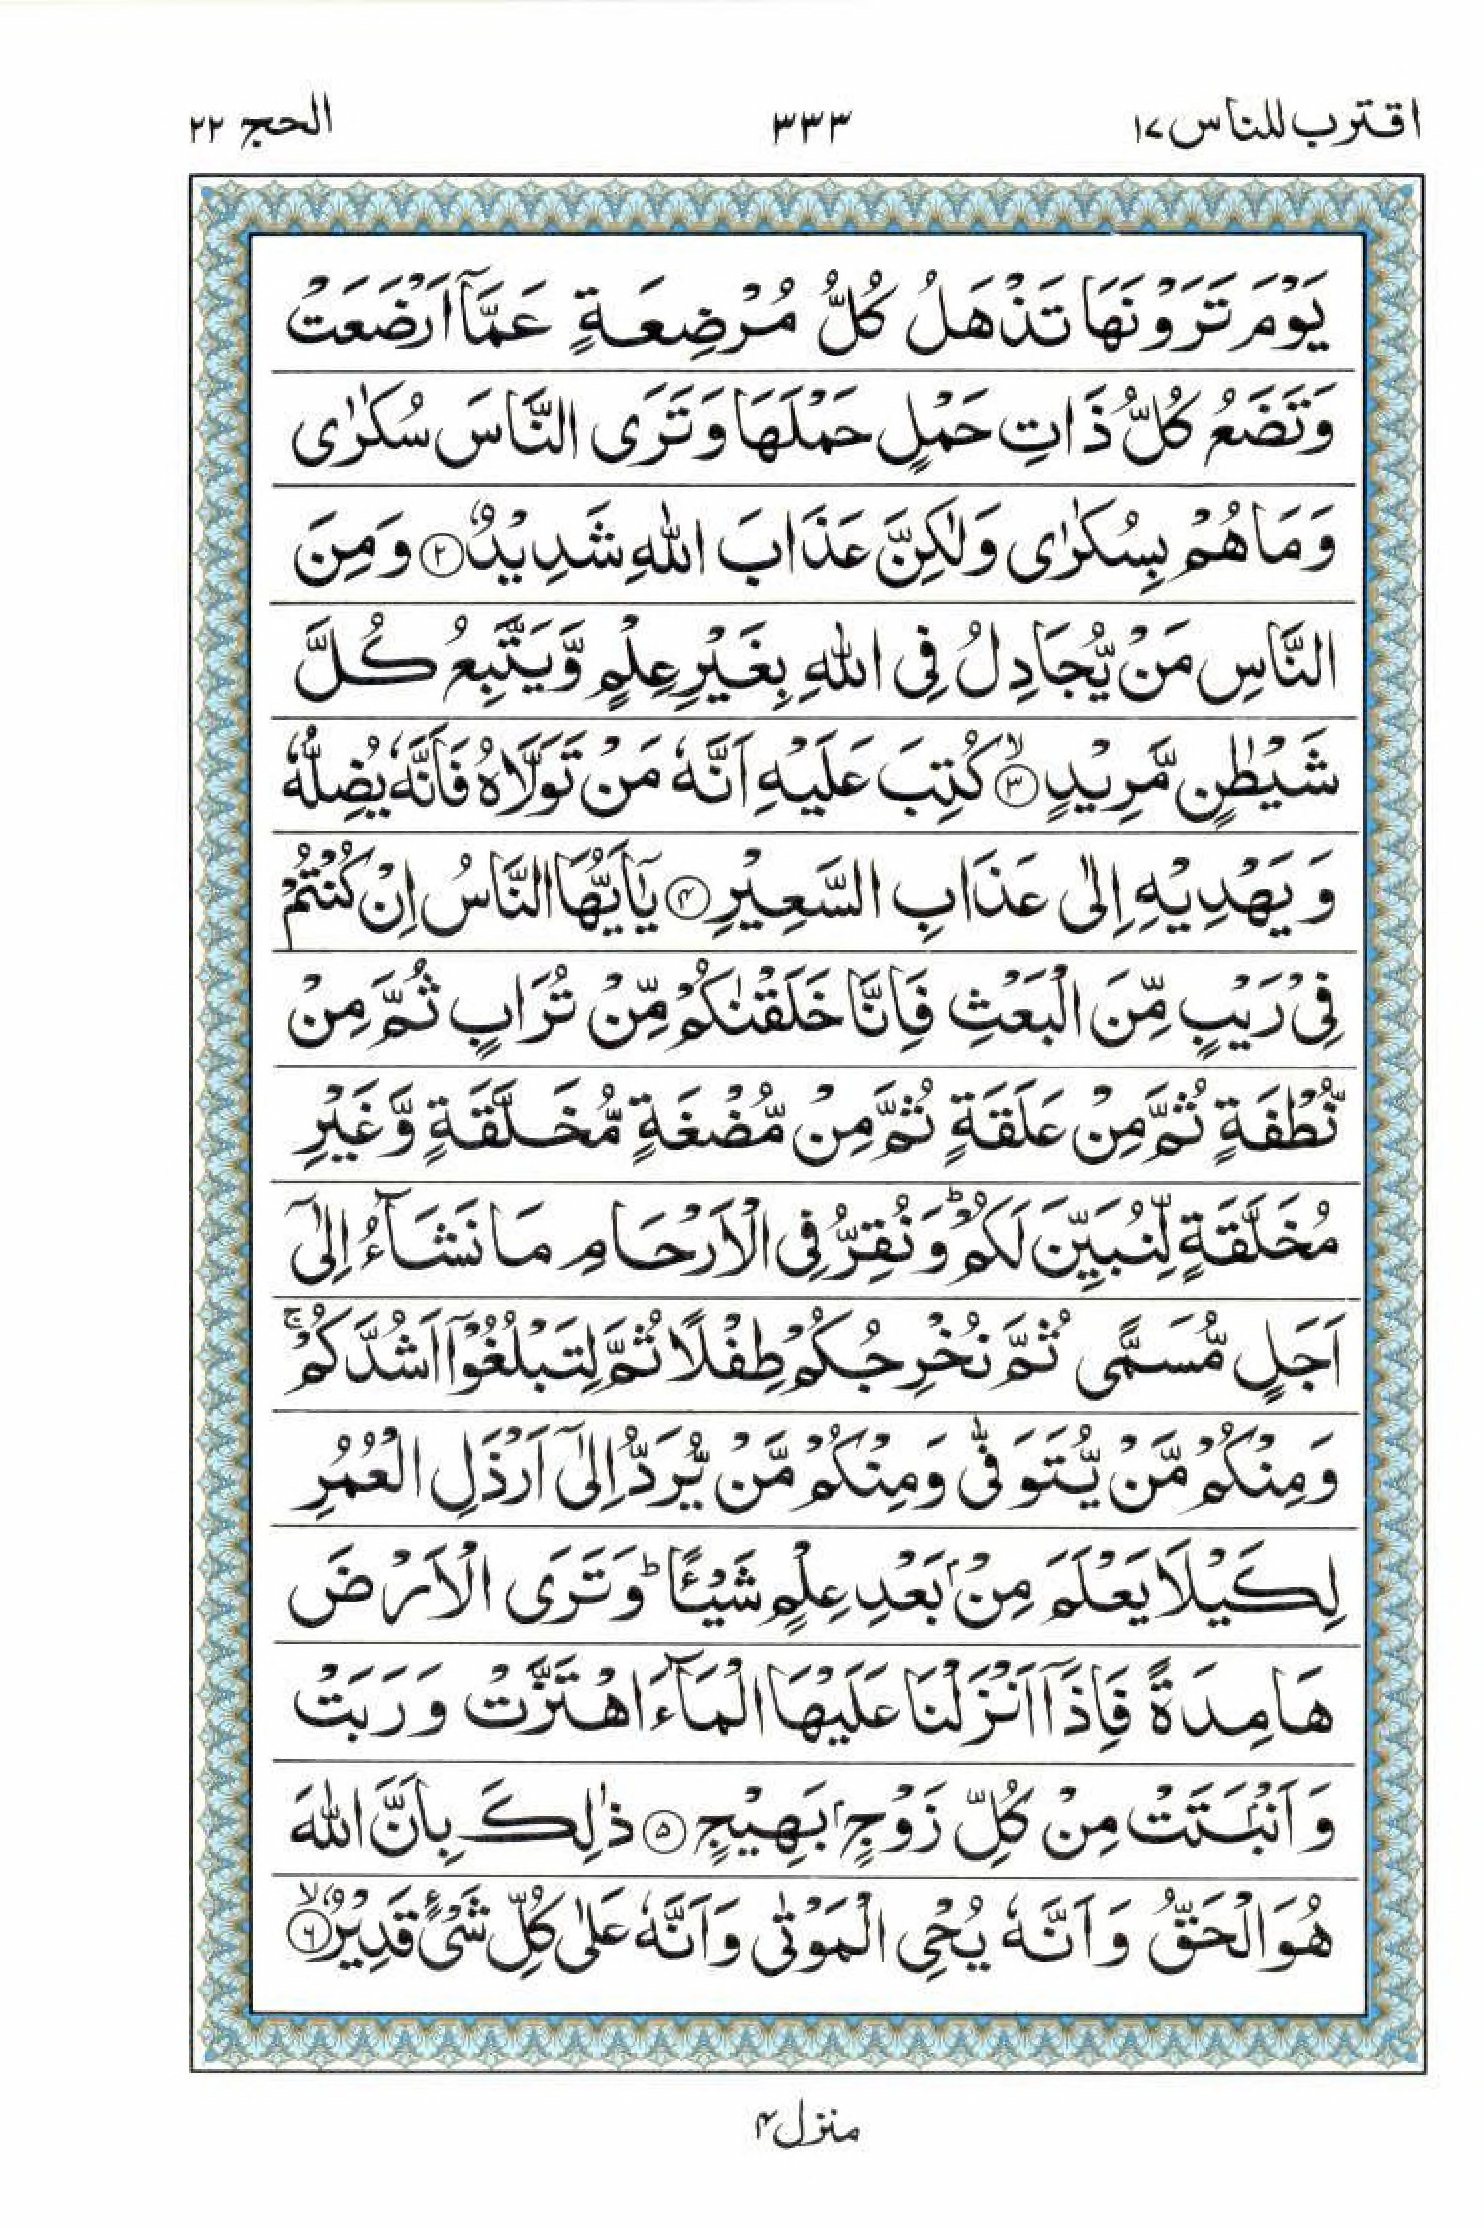 اقترب للناس ١٧
٣٣٣
الحج ٢٢
يَوْمَ تَرَوْنَهَا تَذْهَلُ كُلُّ مُرْضِعَةٍ عَمَّاۤ اَرْضَعَتْ
وَتَضَعُ كُلُّ ذَاتِ حَمْلٍ حَمْلَهَا وَتَرَى النَّاسَ سُكٰرٰى
وَمَا هُمْ بِسُكٰرٰى وَلٰكِنَّ عَذَابَ اللّٰهِ شَدِيْدٌ ۝۲ وَمِنَ
النَّاسِ مَنْ يُّجَادِلُ فِى اللّٰهِ بِغَيْرِ عِلْمٍ وَّيَتَّبِعُ كُلَّ
شَيْطٰنٍ مَّرِيْدٍ ۙ۝۳ كُتِبَ عَلَيْهِ اَنَّهٗ مَنْ تَوَلَّاهُ فَاَنَّهٗ يُضِلُّهٗ
وَيَهْدِيْهِ اِلٰى عَذَابِ السَّعِيْرِ ۝۴ يٰۤاَيُّهَا النَّاسُ اِنْ كُنْتُمْ
فِىْ رَيْبٍ مِّنَ الْبَعْثِ فَاِنَّا خَلَقْنٰكُمْ مِّنْ تُرَابٍ ثُمَّ مِنْ
نُّطْفَةٍ ثُمَّ مِنْ عَلَقَةٍ ثُمَّ مِنْ مُّضْغَةٍ مُّخَلَّقَةٍ وَّغَيْرِ
مُخَلَّقَةٍ لِّنُبَيِّنَ لَكُمْ ؕ وَنُقِرُّ فِى الْاَرْحَامِ مَا نَشَآءُ اِلٰۤى
اَجَلٍ مُّسَمًّى ثُمَّ نُخْرِجُكُمْ طِفْلًا ثُمَّ لِتَبْلُغُوْۤا اَشُدَّكُمْ ۚ
وَمِنْكُمْ مَّنْ يُّتَوَفّٰى وَمِنْكُمْ مَّنْ يُّرَدُّ اِلٰۤى اَرْذَلِ الْعُمُرِ
لِكَيْلَا يَعْلَمَ مِنْۢ بَعْدِ عِلْمٍ شَيْـًٔا ؕ وَتَرَى الْاَرْضَ
هَامِدَةً فَاِذَاۤ اَنْزَلْنَا عَلَيْهَا الْمَآءَ اهْتَزَّتْ وَرَبَتْ
وَاَنْۢبَتَتْ مِنْ كُلِّ زَوْجٍۢ بَهِيْجٍ ۝۵ ذٰلِكَ بِاَنَّ اللّٰهَ
هُوَ الْحَقُّ وَاَنَّهٗ يُحْىِ الْمَوْتٰى وَاَنَّهٗ عَلٰى كُلِّ شَىْءٍ قَدِيْرٌ ۙ۝۶
منزل ۴